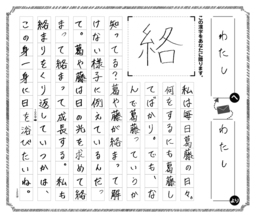 わたし
へ
わたし
この漢字をあなたに贈ります。
絡
私は毎日葛藤の日々。
何をするにも葛藤し
てばかり。でも、な
んで葛藤っていうか
知ってる?葛や藤が絡まって解
けない様子に例えているんだっ
て。葛や藤は日の光を求めて絡
まって絡まって成長する。私も
絡まりをくり返していつかは、
この身一身に日を浴びたいね。